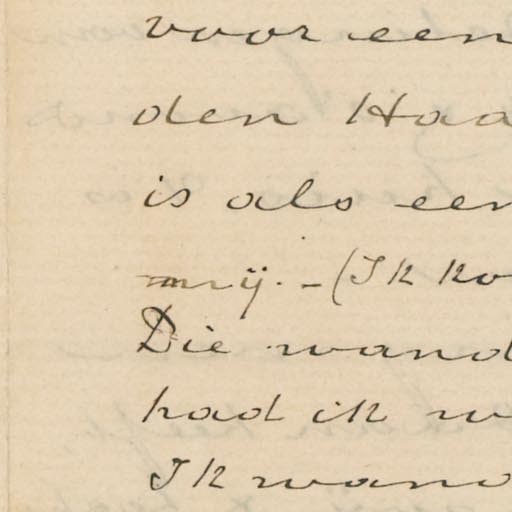 voor een
den Haa
is als een
mij. - (Ik ko
Die wand
had ik w
Ik wand